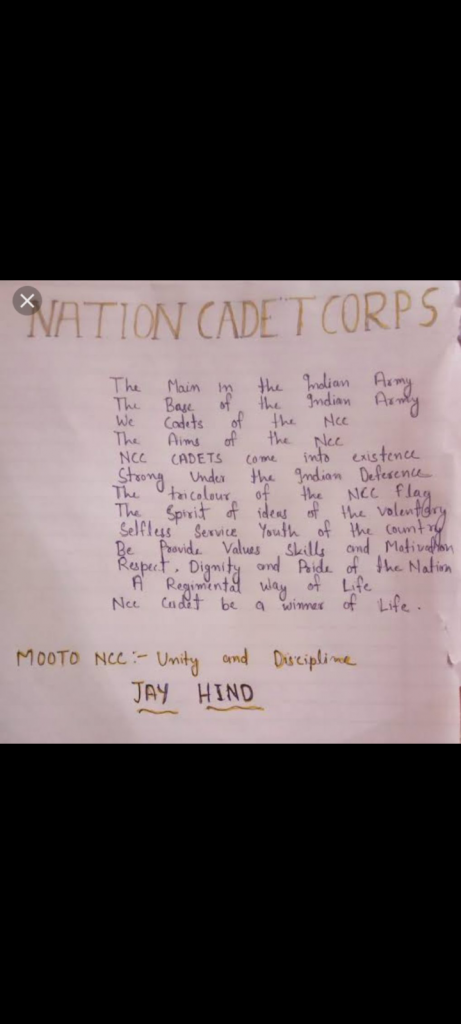 NATION CADET CORPS
The Main in the Indian Army
The Base of the Indian Army
We Cadets of the Ncc
The Aims of the Ncc
NCC CADETS come into existence
Strong Under the Indian Deference
The tricolour of the NCC Flag
The Spirit of ideas of the volentary
Selfless Service Youth of the country
Be Provide Values Skills and Motivation
Respect, Dignity and Pride of the Nation
A Regimental way of Life
Ncc Cadet be a winner of Life.
MOOTO NCC:- Unity and Discipline
JAY HIND